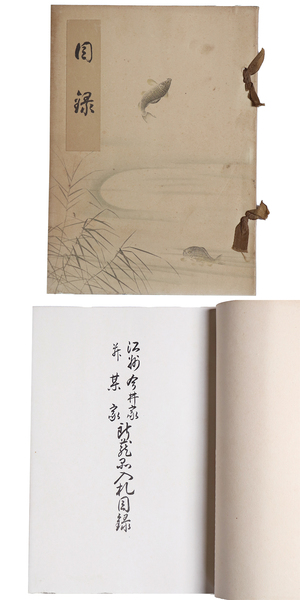 目録
江州今井家
并某家
所蔵品入札目録